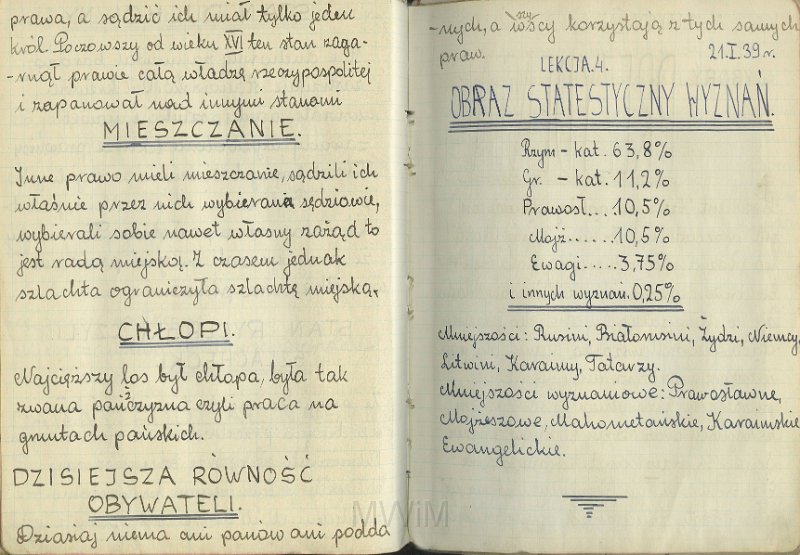 prawa, a sądzić ich miał tylko jeden
król. Począwszy od wieku XVI ten stan zaga-
-rnął prawie całą władzę rzeczypospolitej
i zapanował nad innymi stanami
MIESZCZANIE.
Inne prawo mieli mieszczanie, sądzili ich
właśnie przez nich wybierani sędziowie,
wybierali sobie nawet własny zażąd to
jest radą miejską. Z czasem jednak
szlachta ograniczyła szlachtę miejską.
CHŁOPI.
Najcięższy los był chłopa, była tak
zwana pańszczyzna czyli praca na
gruntach pańskich.
DZISIEJSZA RÓWNOŚĆ
OBYWATELI.
Dziasiaj niema ani panów ani podda
-nych, a wszyscy korzystają z tych samych
praw. 21.I.39r.
LEKCJA.4.
OBRAZ STATESTYCZNY WYZNAŃ.
Rzym - kat. 63,8%
Gr. - kat. 11,2%
Prawosł.... 10,5%
Mojż...... 10,5%
Ewagi..... 3,75%
i innych wyznań. 0,25%
Mniejszości: Rusini, Białorusini, Żydzi, Niemcy,
Litwini, Karaimy, Tatarzy.
Mniejszości wyznaniowe: Prawosławne,
Mojżeszowe, Mahometańskie, Karaimskie
Ewangelickie.
MWiM